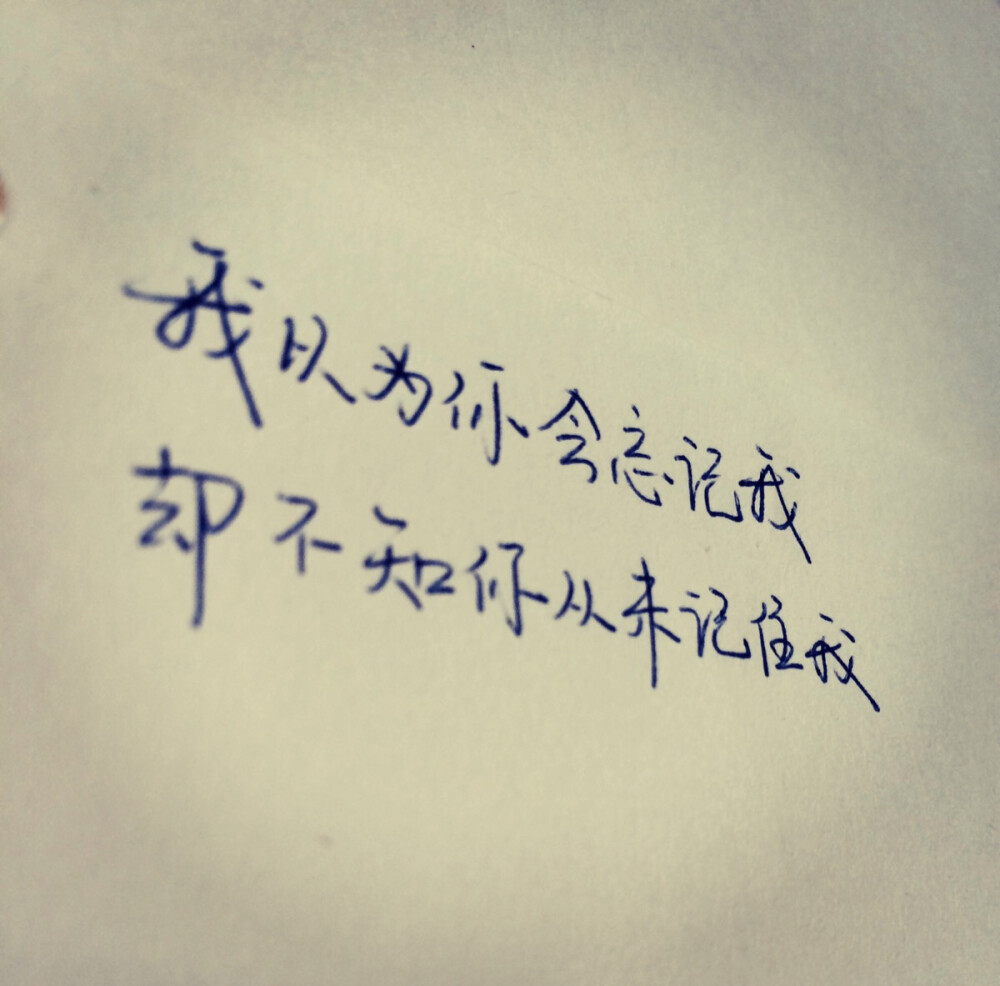 我以为你会忘记我
却不知你从未记住我